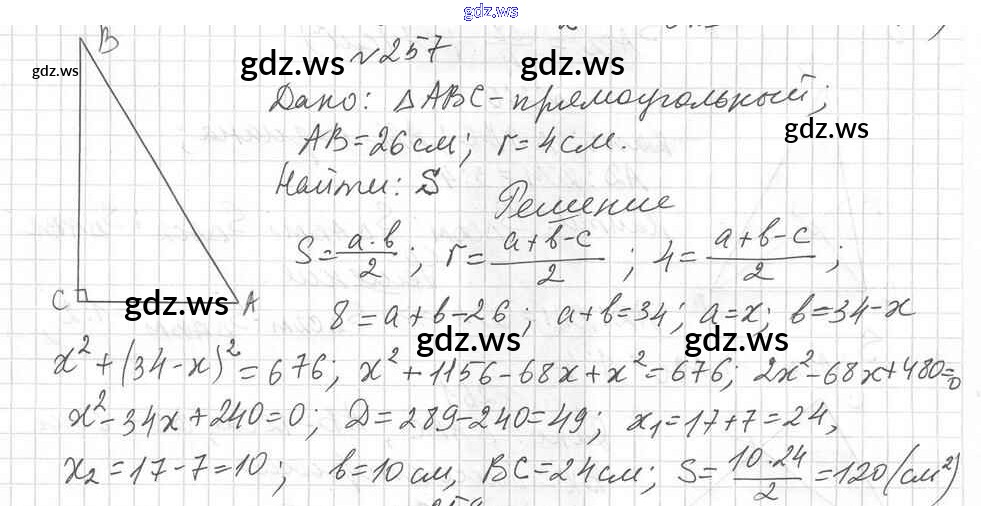 gdz.ws
№257
gdz.ws gdz.ws gdz.ws
B
Дано: △ABC - прямоугольный;
gdz.ws
AB = 26 см; r = 4 см.
Найти: S
Решение
S = a·b/2; r = (a+b-c)/2; 4 = (a+b-c)/2;
C A
gdz.ws
8 = a+b-26; a+b=34; a=x; b=34-x
gdz.ws gdz.ws
x²+(34-x)²=676; x²+1156-68x+x²=676; 2x²-68x+480=0
x²-34x+240=0; D=289-240=49; x₁=17+7=24,
x₂=17-7=10; b=10 см, BC=24 см; S= 10·24/2 =120 (см²)